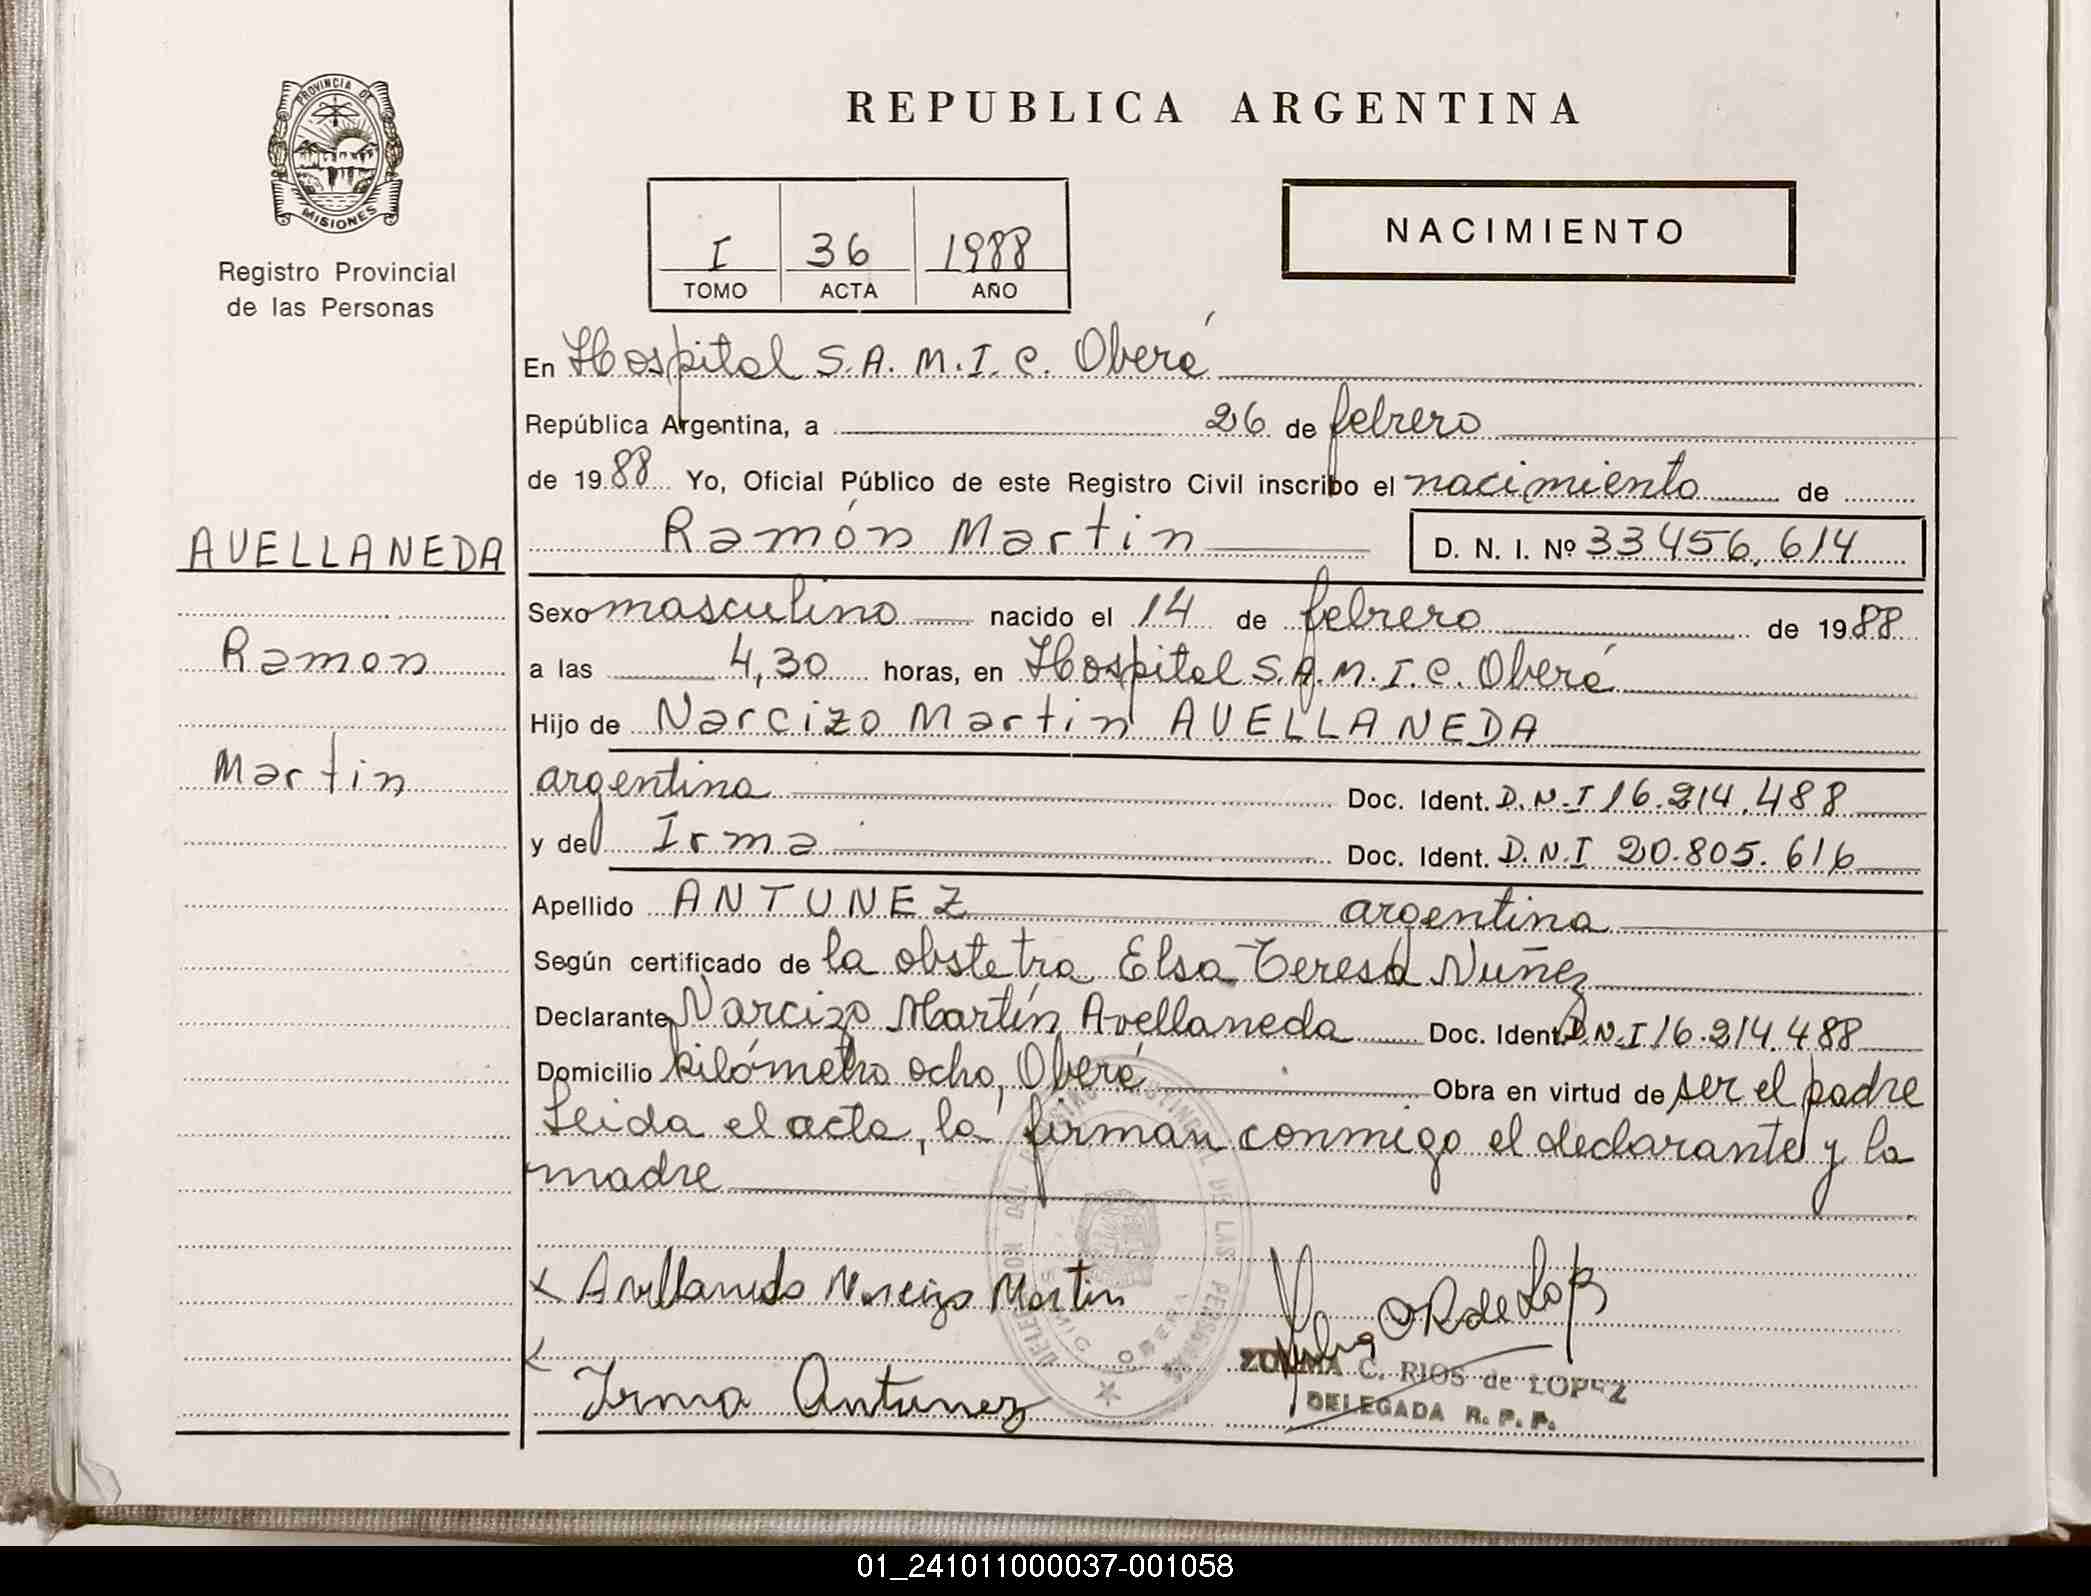 PROVINCIA DE
MISIONES
Registro Provincial
de las Personas
REPUBLICA ARGENTINA
I 36 1988
TOMO ACTA AÑO
NACIMIENTO
En Hospital S.A.M.I.C. Oberá
República Argentina, a 26 de febrero
de 1988 Yo, Oficial Público de este Registro Civil inscribo el nacimiento de
Ramón Martin D. N. I. Nº 33456.614
AVELLANEDA
Ramon
Martin
Sexo masculino nacido el 14 de febrero de 1988
a las 4,30 horas, en Hospital S.A.M.I.C. Oberá
Hijo de Narcizo Martin AVELLANEDA
argentina Doc. Ident. D.N.I 16.214.488
y de Irma Doc. Ident. D.N.I 20.805.616
Apellido ANTUNEZ argentina
Según certificado de la obstetra Elsa Teresa Nuñez
Declarante Narcizo Martín Avellaneda Doc. Ident. D.N.I 16.214.488
Domicilio kilómetro ocho, Oberá Obra en virtud de ser el padre
Leida el acta, la firman conmigo el declarante y la
madre
x Avellaneda Narcizo Martin
x
Irma Antunez
ZULMA C. RIOS de LOPEZ
DELEGADA R. P. P.
01_241011000037-001058